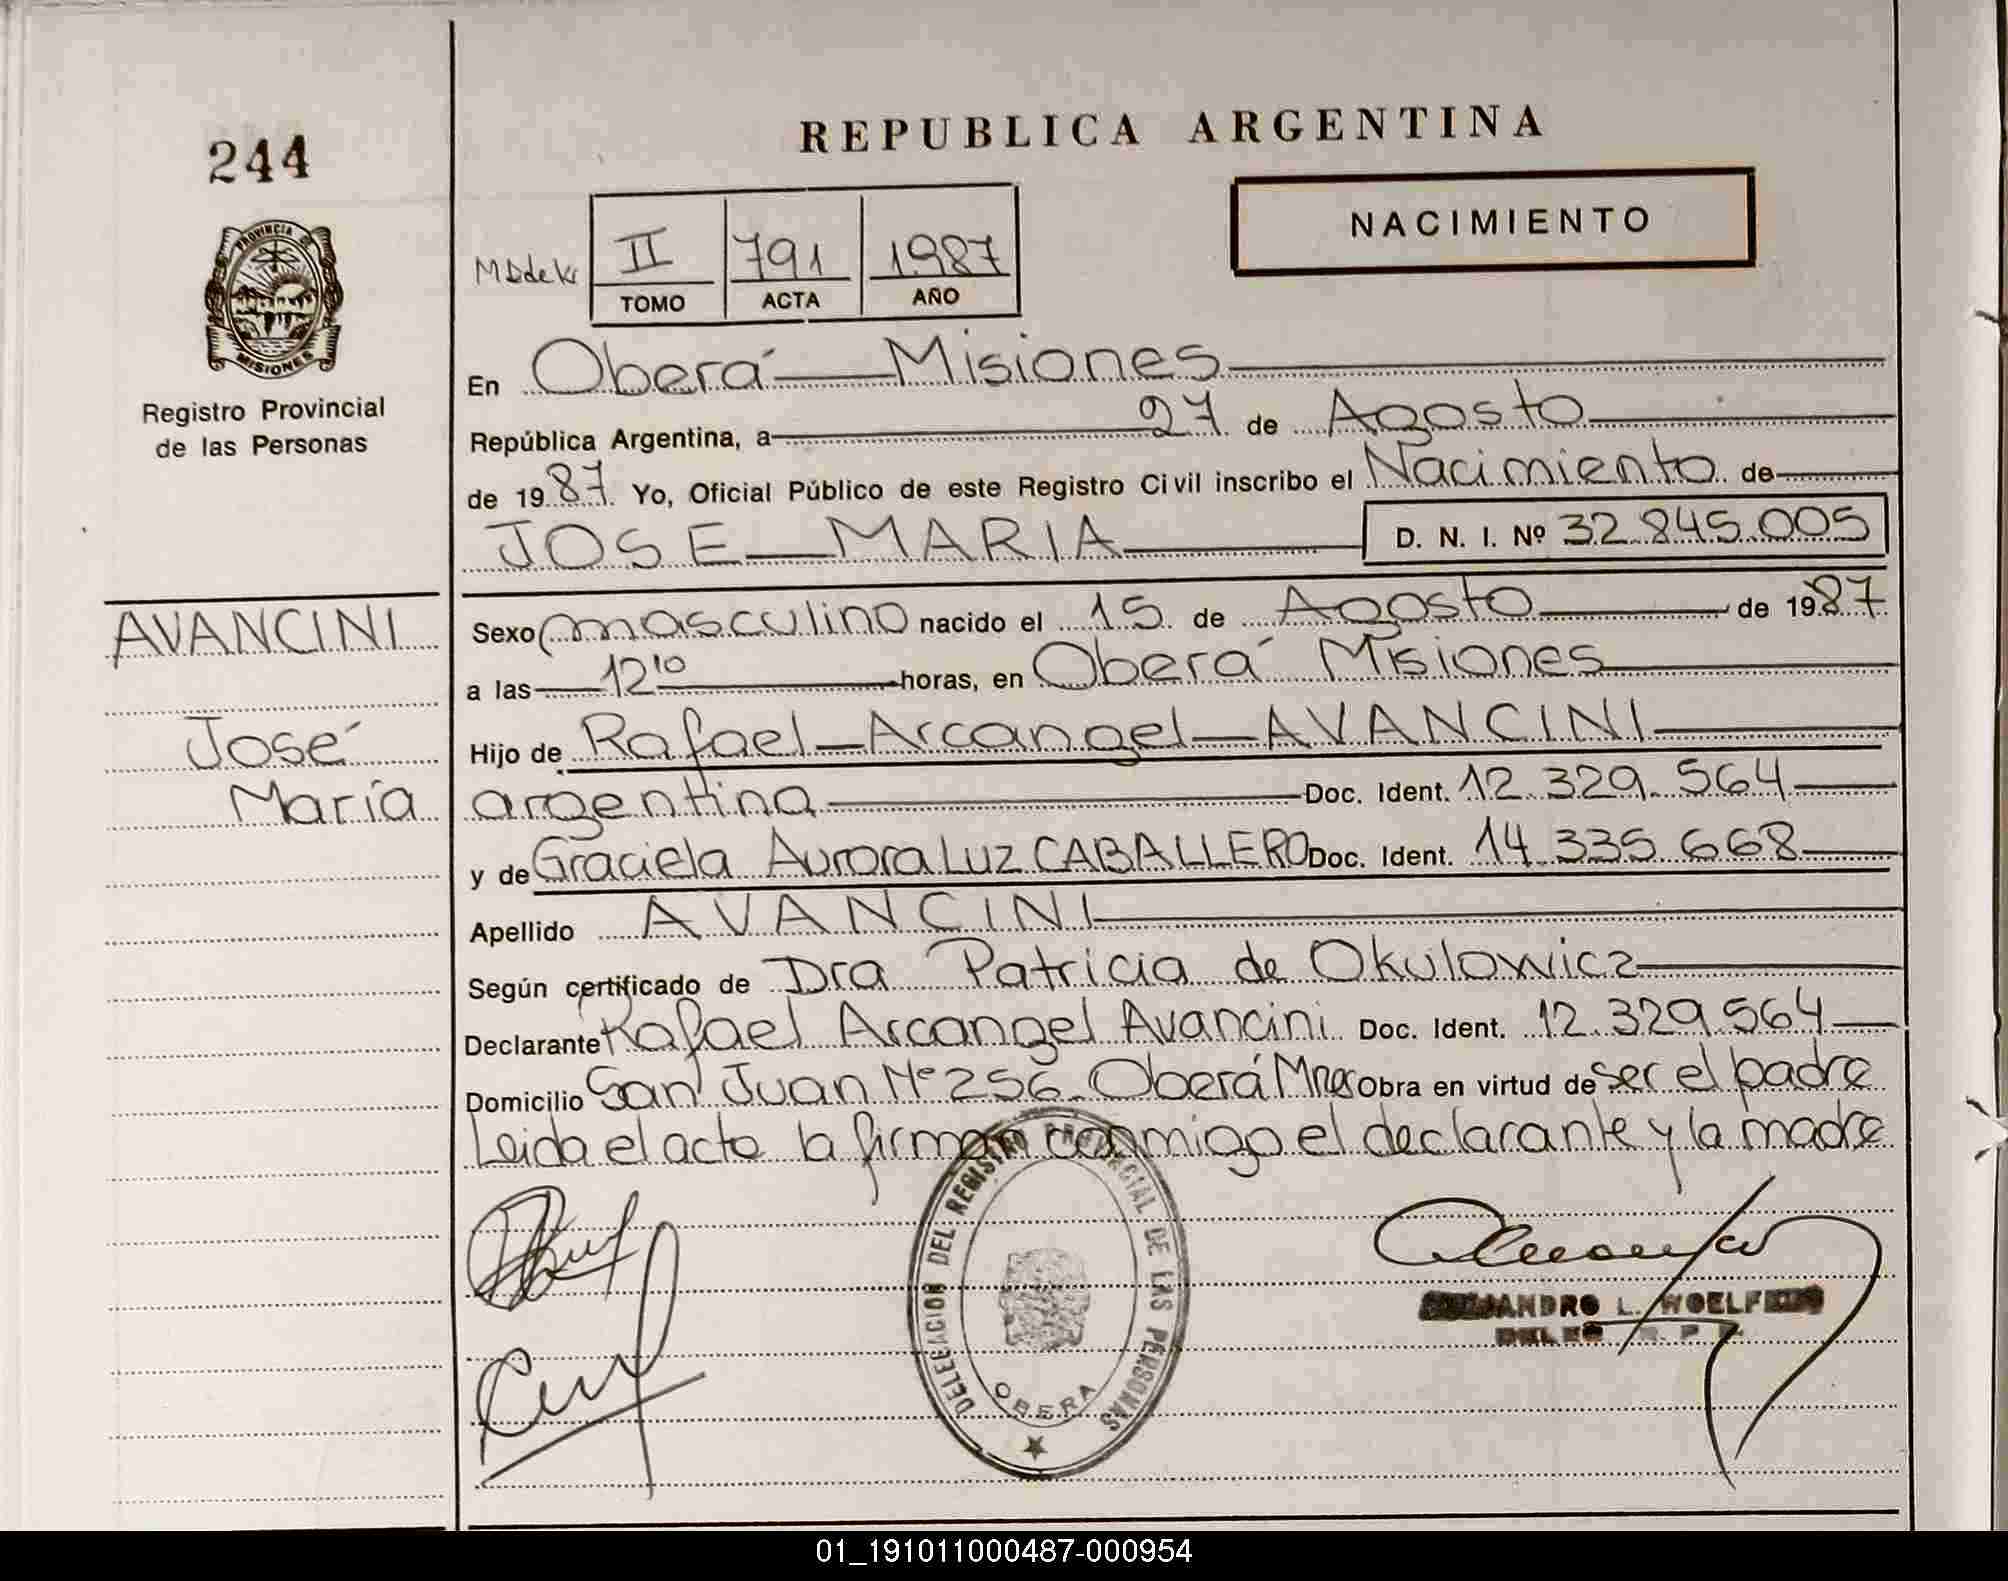 244
REPUBLICA ARGENTINA
NACIMIENTO
II 791 1987
TOMO ACTA AÑO
PROVINCIA DE MISIONES
Registro Provincial
de las Personas
En Oberá Misiones
República Argentina, a 27 de Agosto
de 1987. Yo, Oficial Público de este Registro Civil inscribo el Nacimiento de
JOSE MARIA D. N. I. Nº 32.845.005
AVANCINI
José
María
Sexo masculino nacido el 15 de Agosto de 1987
a las 12 10 horas, en Oberá Misiones
Hijo de Rafael Arcangel AVANCINI
argentina Doc. Ident. 12.329.564
y de Graciela Aurora Luz CABALLERO Doc. Ident. 14.335.668
Apellido AVANCINI
Según certificado de Dra Patricia de Okulowicz
Declarante Rafael Arcangel Avancini Doc. Ident. 12.329.564
Domicilio San Juan Nº 256 Oberá Mnes Obra en virtud de ser el padre
Leida el acta la firman conmigo el declarante y la madre
DELEGACION DEL REGISTRO PROVINCIAL DE LAS PERSONAS
OBERA
ALEJANDRO L.
01_191011000487-000954